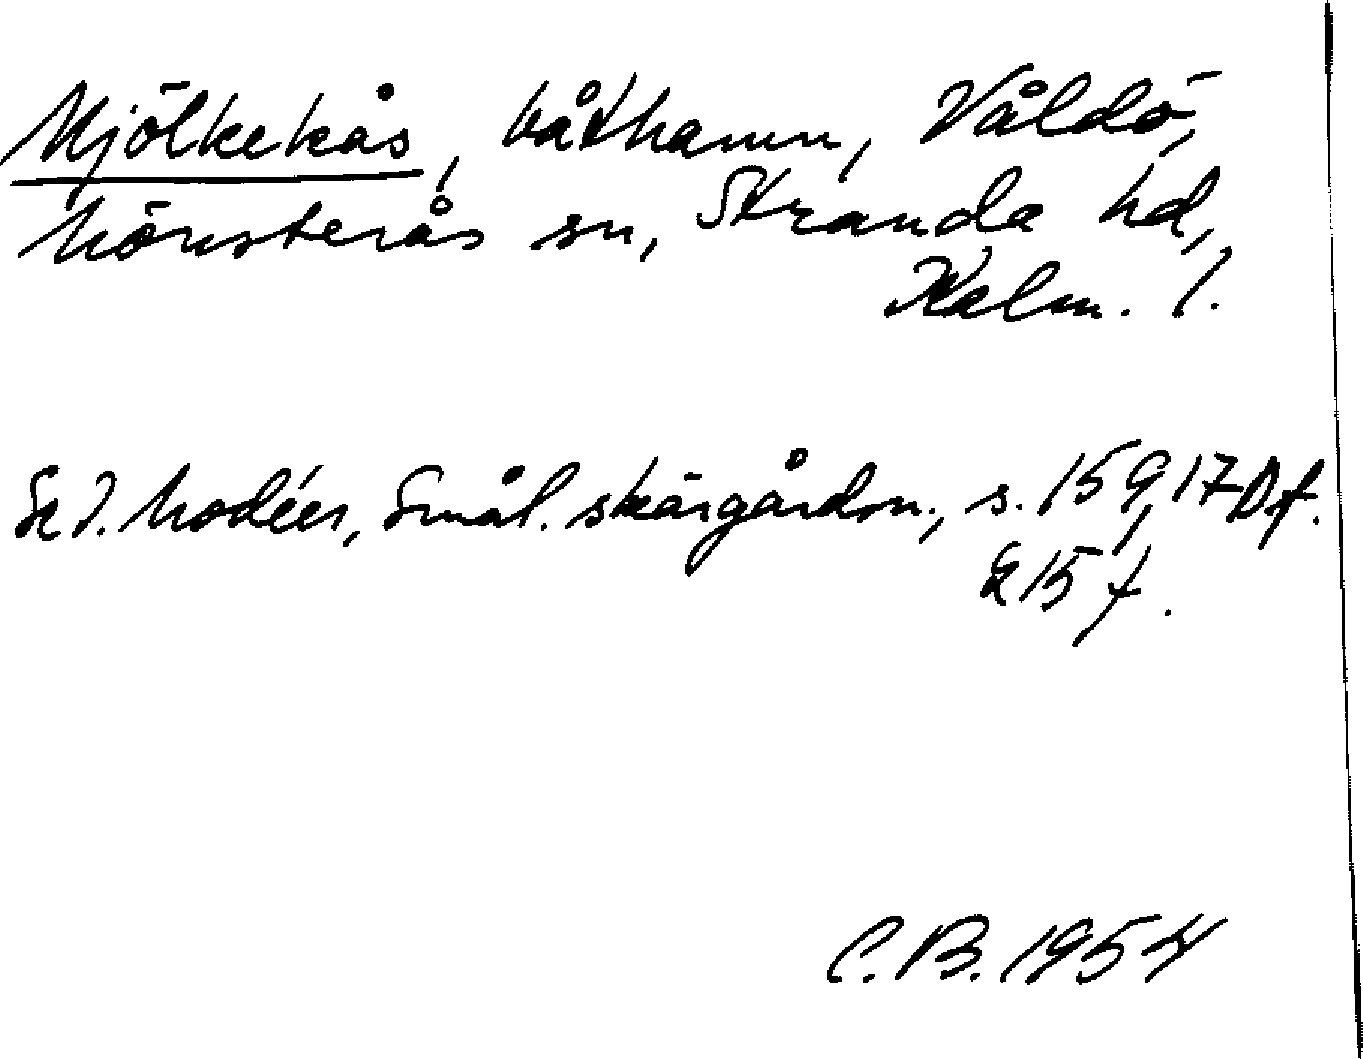 Mjölkekås, båthamn, Våldö,
Mönsterås sn, Stranda hd,
Kalm. l.
Se I. Modéer, Smål. skärgårdsn., s. 159, 17 Df.
& 157.
C. B. 1954